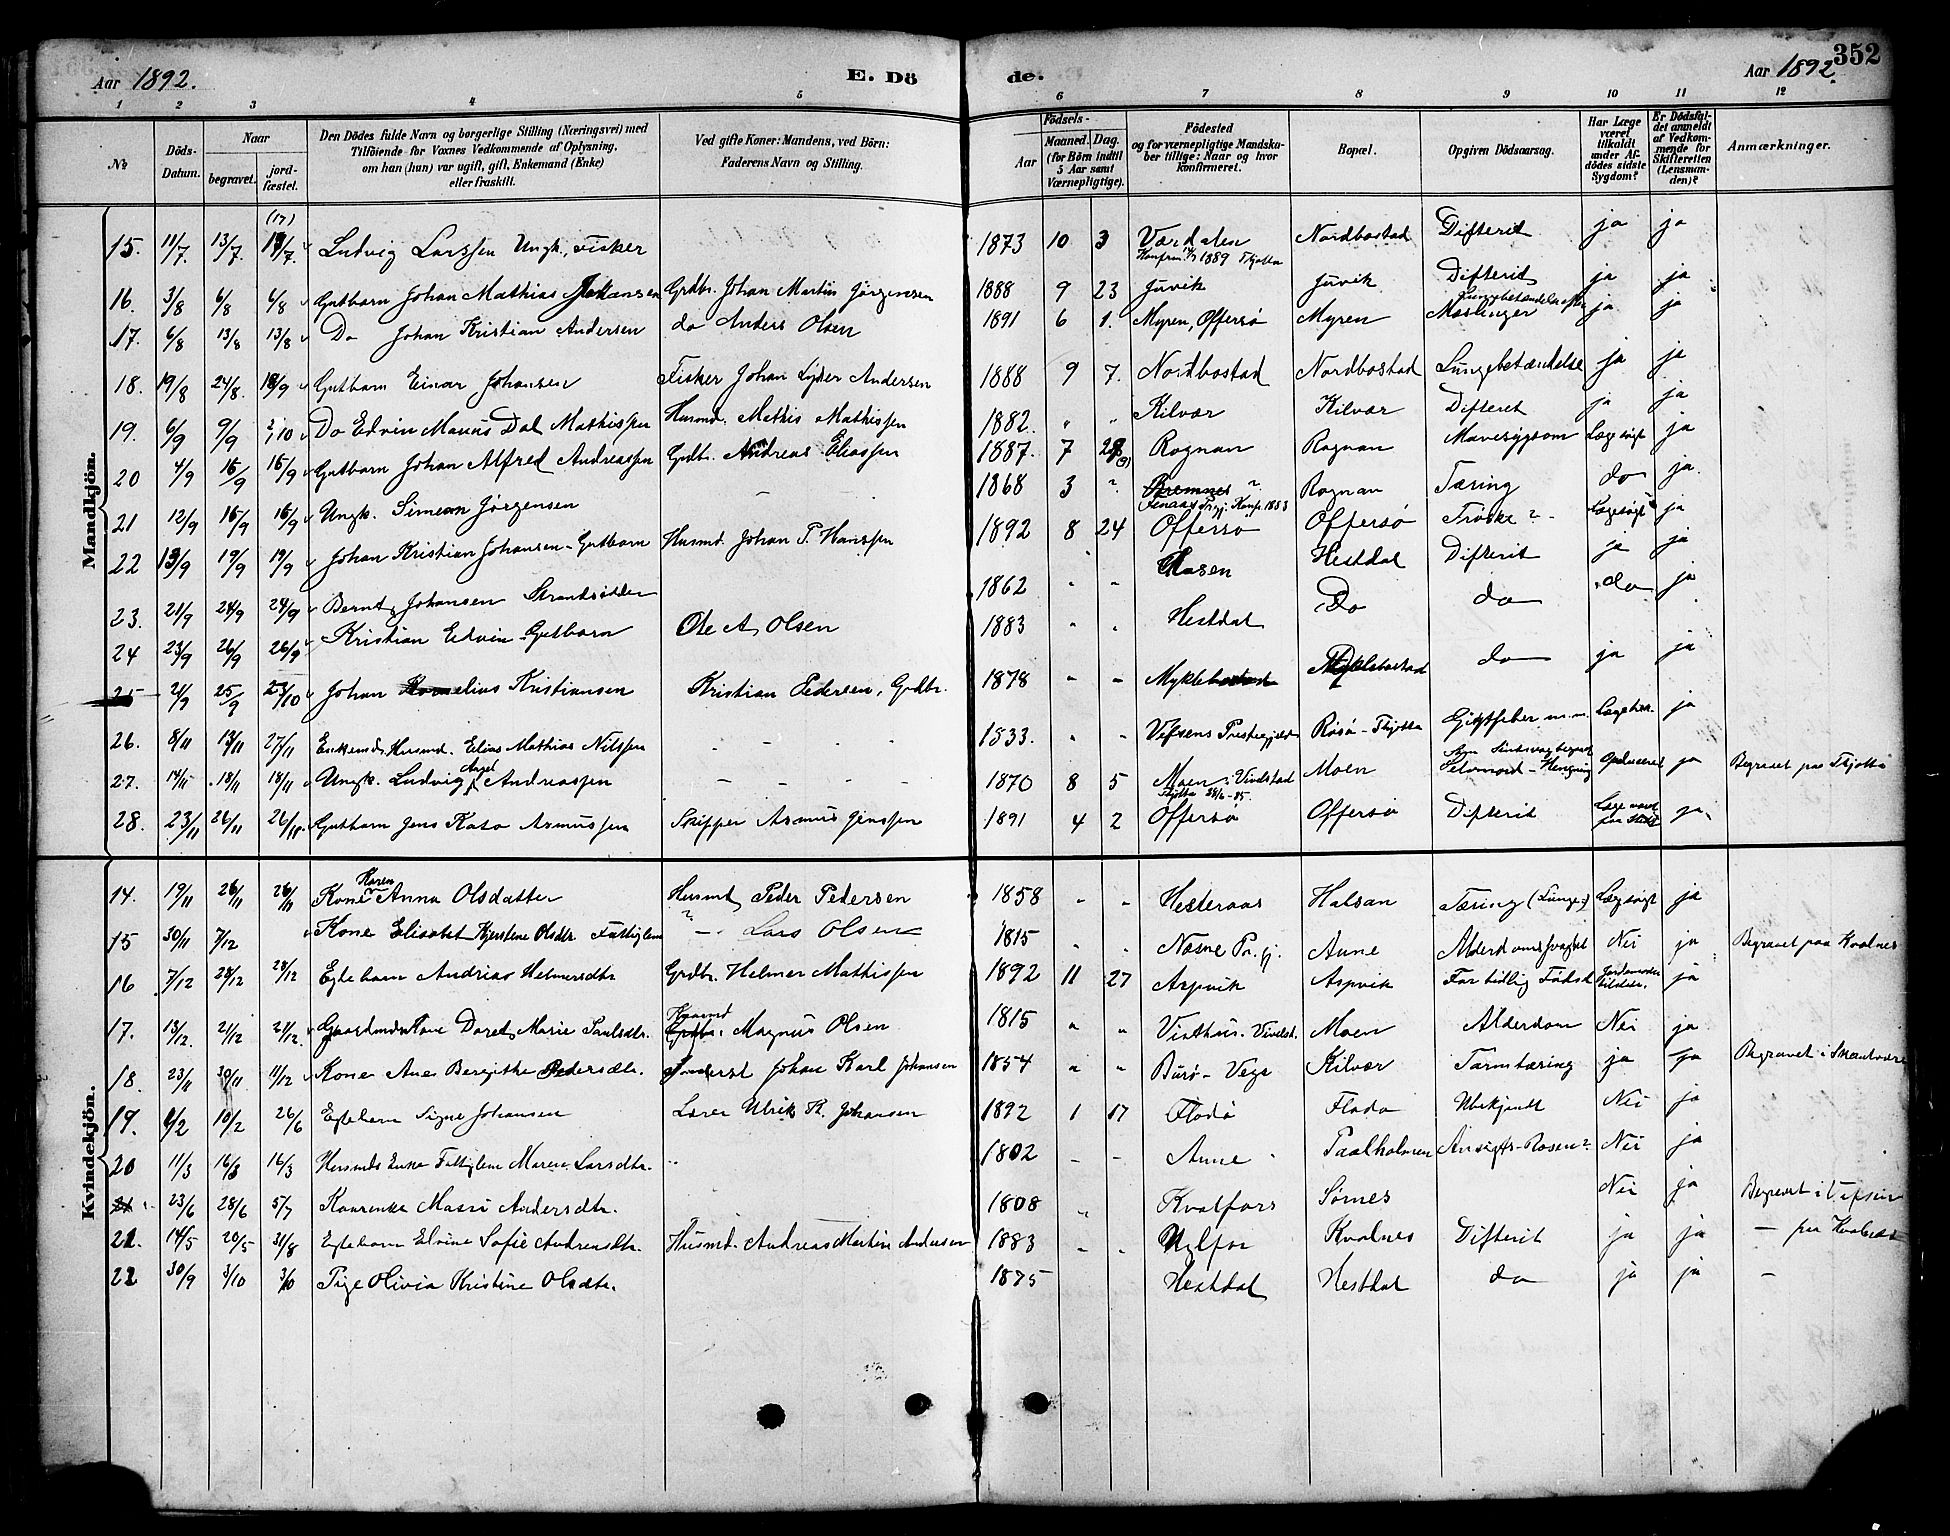 352
Aar 1892.
E. Dö
de.
Aar 1892.
1 2 3 4 5 6 7 8 9 10 11 12
№
Döds-Datum.
Naar
begravet.
jord-fæstet.
Den Dödes fulde Navn og borgerlige Stilling (Næringsvei) med
Tilföiende for Voxnes Vedkommende af Oplysning,
om han (hun) var ugift, gift, Enkemand (Enke)
eller fraskilt.
Ved gifte Koner: Mandens, ved Börn:
Faderens Navn og Stilling.
Födsels-
Aar
Maaned. Dag.
(for Börn indtil
5 Aar samt
Værnepligtige).
Födested
og for værnepligtige Mandska-
ber tillige: Naar og hvor
konfirmeret.
Bopæl.
Opgiven Dödsaarsag.
Har Læge
været
tilkaldt
under Af-
dödes sidste
Sygdom?
Er Dödsfal-
det anmeldt
af Vedkom-
mende for
Skifteretten
(Lensman-
den)?
Anmærkninger.
Mandkjön.
15. 11/7 13/7 (17) 17/7 Ludvig Larssen Ungk., Fisker 1873 10 3 Værdalen Nordbostad Difterit ja ja
Konfirm. 1889 Tjøtta
16. 3/8 6/8 6/8 Gutbarn Johan Mathias Johansen Grdbr. Johan Martin Jørgensen 1888 9 23 Juvik Juvik Difterit ja ja
17. 6/8 13/8 13/8 Do Johan Kristian Andersen do Anders Olsen 1891 6 1. Myren, Offersø Myren Lungebetændelse efter Mæslinger ja ja
18. 19/8 24/8. 18/9 Gutbarn Einar Johansen Fisker Johan Lyder Andersen 1888 9 7. Nordbostad Nordbostad Lungebetændelse ja ja
19. 6/9 9/9 2/10 Do Edvin Marius Dal Mathissen Husmd. Mathis Mathissen 1882. " " Kilvær Kilvær Difterit ja ja
20 4/9 15/9 15/9 Gutbarn Johan Alfred Andreassen Grdbr. Andreas Eliassen 1887. 7 28 Rognan Rognan Mavesygdom Lægesøgt ja
21 12/9 16/9 16/9 Ungk. Simeon Jørgensen – 1868 3 ? Bremnes ? Rognan Tæring do ja.
Konf. 1883
22 13/9 19/9 19/9 Johan Kristian Johansen - Gutbarn Husmd Johan P. Hanssen 1892 8 24 Offersø Offersø Trøske? Lægesøgt ja
23. 21/9 24/9 24/9 Bernt Johansen Strandsidder 1862 " " Aasen Hestdal Difterit ja ja
24 23/9 26/9 26/9 Kristian Edvin - Gutbarn Ole A Olsen 1883 " " Hestdal Do do do ja
25 21/9 25/9 23/10 Johan Kornelius Kristiansen Kristian Pedersen, Grdbr. 1878 " " Myklebostad Myklebostad do ja ja
26. 8/11 13/11 27/11 Enkemd, Husmd. Elias Mathias Nilssen 1833. " " Vefsens Præstegjeld Røsø - Tjøtta Gigtfeber m.m. ja
27. 14/11 18/11 18/11 Ungk. Ludvig Angel Andreassen 1870 8 5 Moen i Vindstad Moen Selvmord - Hængning Obduceret ja Begravet paa Tjøtta
28. 23/11 26/11 26/11. Gutbarn Jens Kato Asmussen Skipper Asmus Jenssen 1891 4 2 Offersø Offersø Difterit ja.
Kvindekjön.
14. 19/11 26/11 26/11 Kone Karen Anna Olsdatter Husmd Peder Pedersen 1858 " " Hesteraas Halsan Tæring (Lunge) Lægesøgt ja
15 30/11 7/12 Kone Elisabet Kjerstine Olsdtr Fattiglem ? – Lars Olsen 1815 " " Næsne Pr.gj. Aune Alderdomssvaghet Nei ja Begravet paa Kvalnes
16 7/12 28/12 28/12 Egtebarn Andrias Helmersdtr Grdbr. Helmer Mathissen 1892 11 27 Aspvik Aspvik For tidlig Fødsel Jordemoder tilstede. ja
17. 13/12. 21/12 21/12. Gaardmdskone Doret Marie Paulsdtr. Grdbr. Magnus Olsen 1815 " " Visthus. Vindst. Moen Alderdom Nei ja
18. 23/11 30/11 11/12 Kone Ane Bergitte Pedersdtr. Johan Karl Johansen 1854 " " Burø - Vega Kilvær Tarmtæring ja ja
19. 6/2 10/2 26/6 Egtebarn Signe Johansen Lærer Ulrik Th. Johansen 1892 1 17 Flodø Flodø Ubekjendt Nei ja
20 11/3 16/3 16/3 Husmds Enke Fattiglem Maren Larsdtr. 1802 – – Aune Paalholmen Ansigts-Rosen? Nei ja
21 23/6 28/6 5/7 Karenka Massi Andersdtr. 1808 " Kvalfors Sørnes Nei ja Begravet i Vefsen
21. 14/5 20/5 31/8 Egtebarn Elvine Sofie Andreasdtr. Husmd. Andreas Martin Andersen 1883 " " Kvalnes Difterit ja ja
22 30/9 3/10 3/10 Pige Olivia Kristine Olsdtr. 1875 Hestdal Hestdal do ja ja –